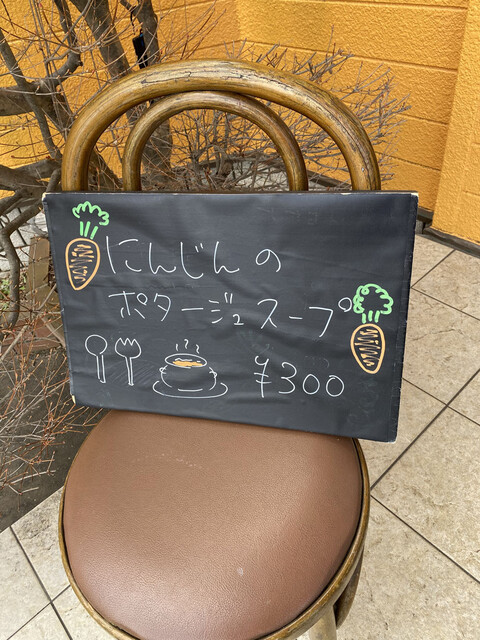 にんじんの
ポタージュスープ
¥300